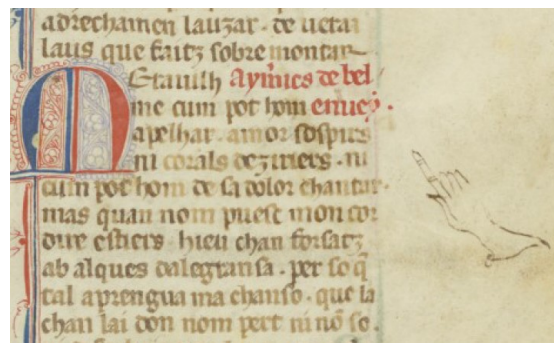 adrechamen lauzar. de uerai
laus que faitz sobre montar
Meravilh Aymirics de bel
me cum pot hom enuey.
apelhar. amor sospirs
ni corals deziriers. ni
cum pot hom de sa dolor chantar.
mas quan nom puesc mon cor
dire estiers hieu chan forsatz
ab alques dalegransa. per so q̃
tal aprengua ma chanso. que la
chan lai don nom pert ni nõ so.